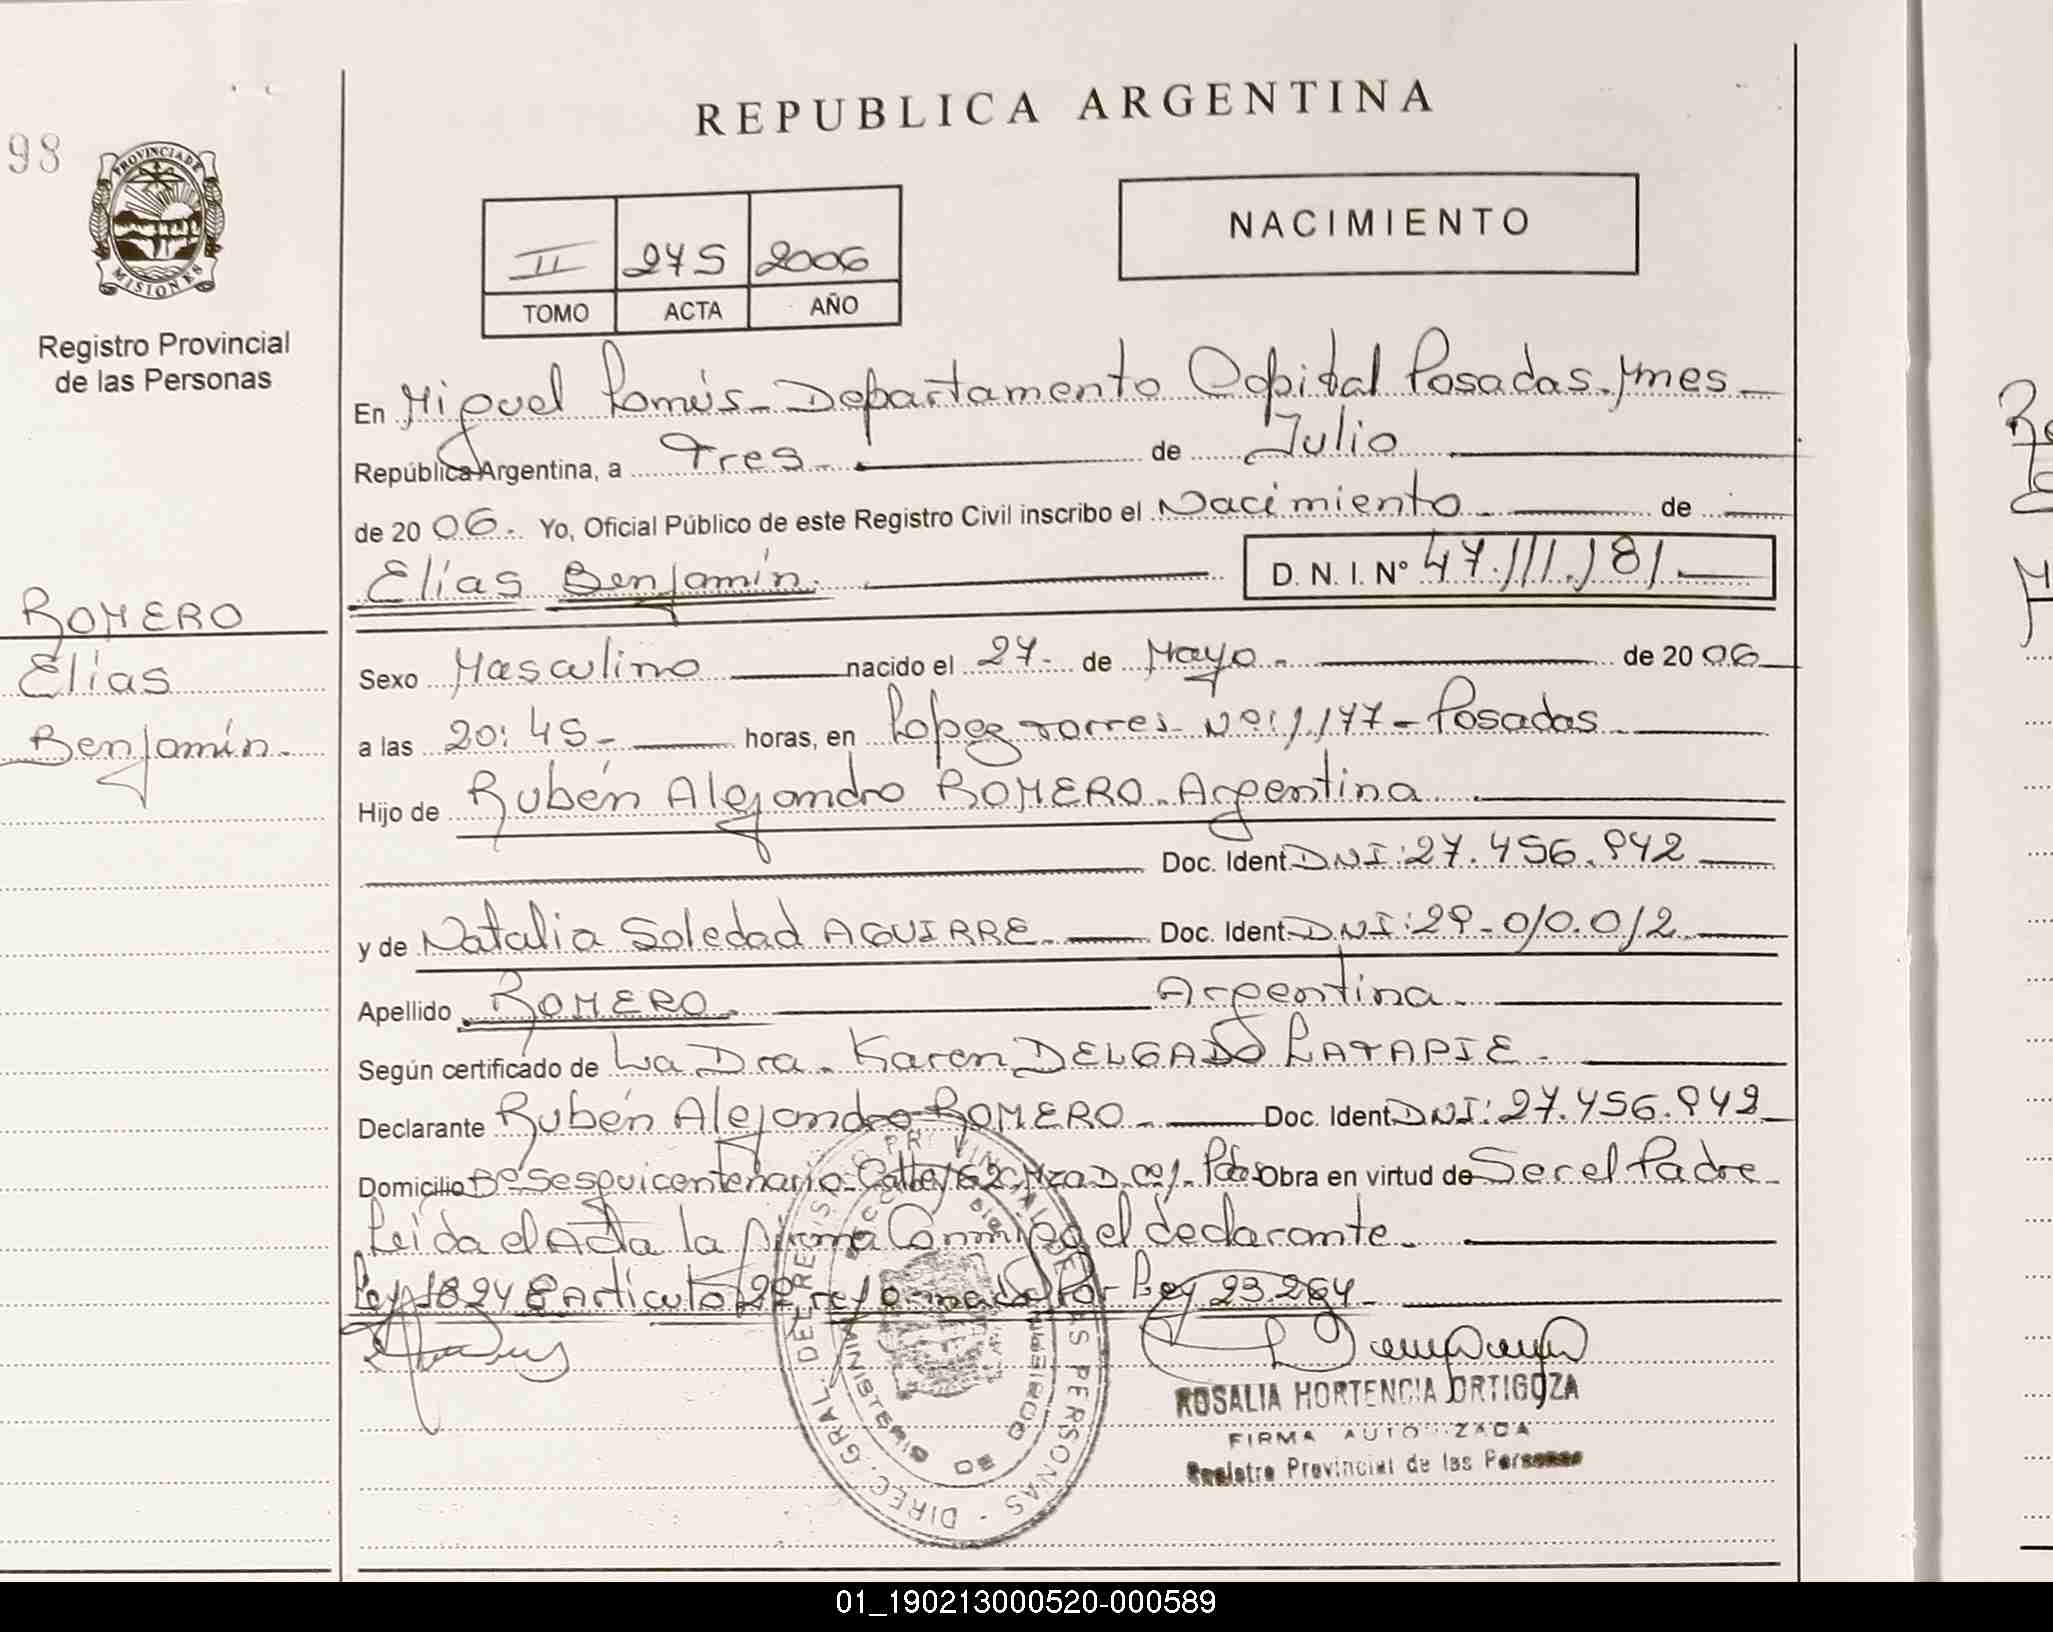 98
PROVINCIA DE
MISIONES
Registro Provincial
de las Personas
ROMERO
Elías
Benjamín.
REPUBLICA ARGENTINA
NACIMIENTO
II 275 2006
TOMO ACTA AÑO
En Miguel Lanús - Departamento Capital Posadas. Mnes -
República Argentina, a Tres. de Julio
de 2006. Yo, Oficial Público de este Registro Civil inscribo el Nacimiento de
Elías Benjamín. D. N. I. Nº 47.111.181
Sexo Masculino nacido el 27 de Mayo. de 2006
a las 20:45 - horas, en López Torres Nº: 1.177 - Posadas
Hijo de Rubén Alejandro ROMERO. Argentina
Doc. Ident DNI: 27.456.942
y de Natalia Soledad AGUIRRE. Doc. Ident DNI: 29.010.012
Apellido ROMERO. Argentina.
Según certificado de La Dra. Karen DELGADO LATAPIE.
Declarante Rubén Alejandro ROMERO. Doc. Ident DNI: 27.456.942
Domicilio Bº Sesquicentenario Calle 162 Mza D. Pdas Obra en virtud de Ser el Padre
Leída el Acta la firma Conmigo el declarante.
Ley 18248 Artículo 2º reformada Por Ley 23.264
DIREC. GRAL. DEL REGISTRO PROVINCIAL DE LAS PERSONAS
MINISTERIO DE GOBIERNO
ROSALIA HORTENCIA ORTIGOZA
FIRMA AUTORIZADA
Registro Provincial de las Personas
01_190213000520-000589